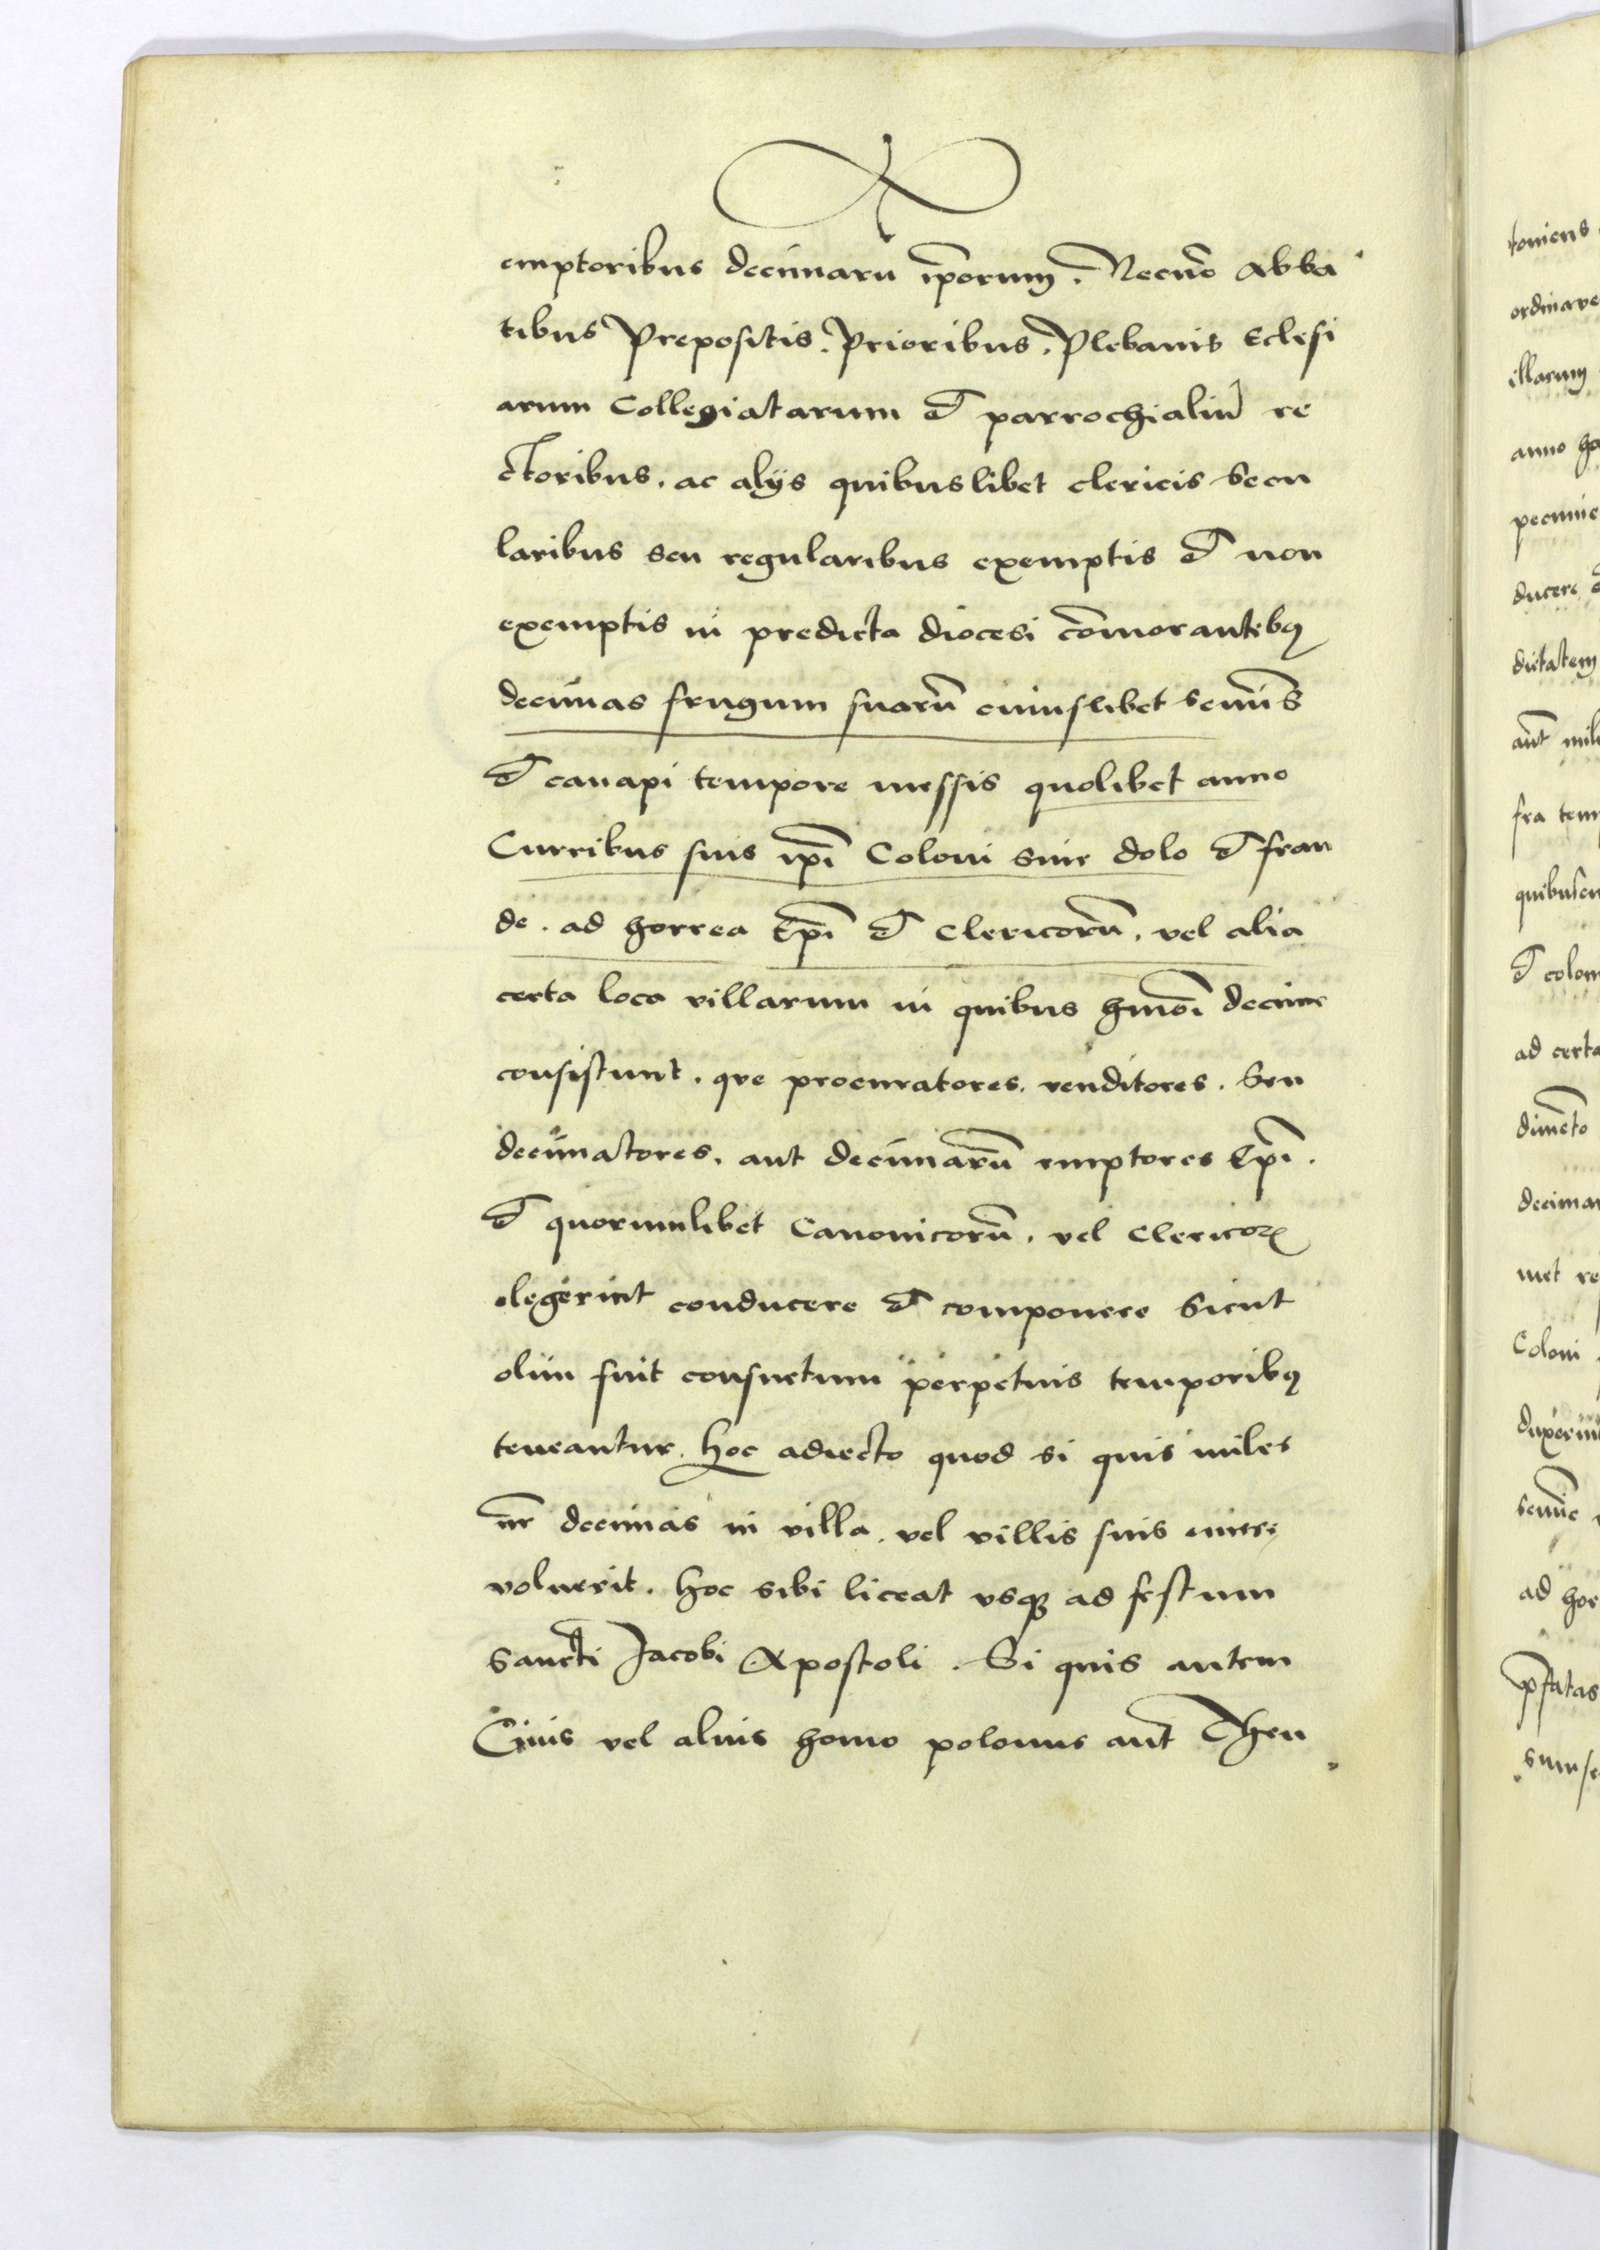 emptoribus decimaru ip̄orum. Necnō Abba
tibus Prepositis. Prioribus. Plebanis Eclesi
arum Collegiatarum et parrochialiū re
ctoribus. ac alijs quibuslibet clericis secu
laribus seu regularibus exemptis et non
exemptis in predicta diocesi cōmorantibꝰ
decimas frugum suarū cuiuslibet seminis
et canapi tempore messis quolibet anno
Curribus suis ip̄i Coloni sine dolo et frau
de. ad horrea Ep̄i et Clericorū. vel alia
certa loca villarum in quibus hmōi decime
consistunt. que procuratores. venditores. Seu
decimatores. aut decimarū emptores Ep̄i.
et quorumlibet Canonicorū. vel Clericoꝝ
elegerint conducere et componere Sicut
olim fuit consuetum perpetuis temporibꝰ
teneantur. Hoc adiecto quod si quis miles
nr̄ decimas in villa. vel villis suis emere
voluerit. Hoc sibi liceat vsqꝫ ad festum
Sancti Jacobi Apostoli. Si quis autem
Ciuis vel alius homo polonus aut Theu
toniens
ordinare
illarum
anno
pecunie
ducere
aūt
fra
et
ad certa
decimar
met
Coloni
ad
p̄fatas